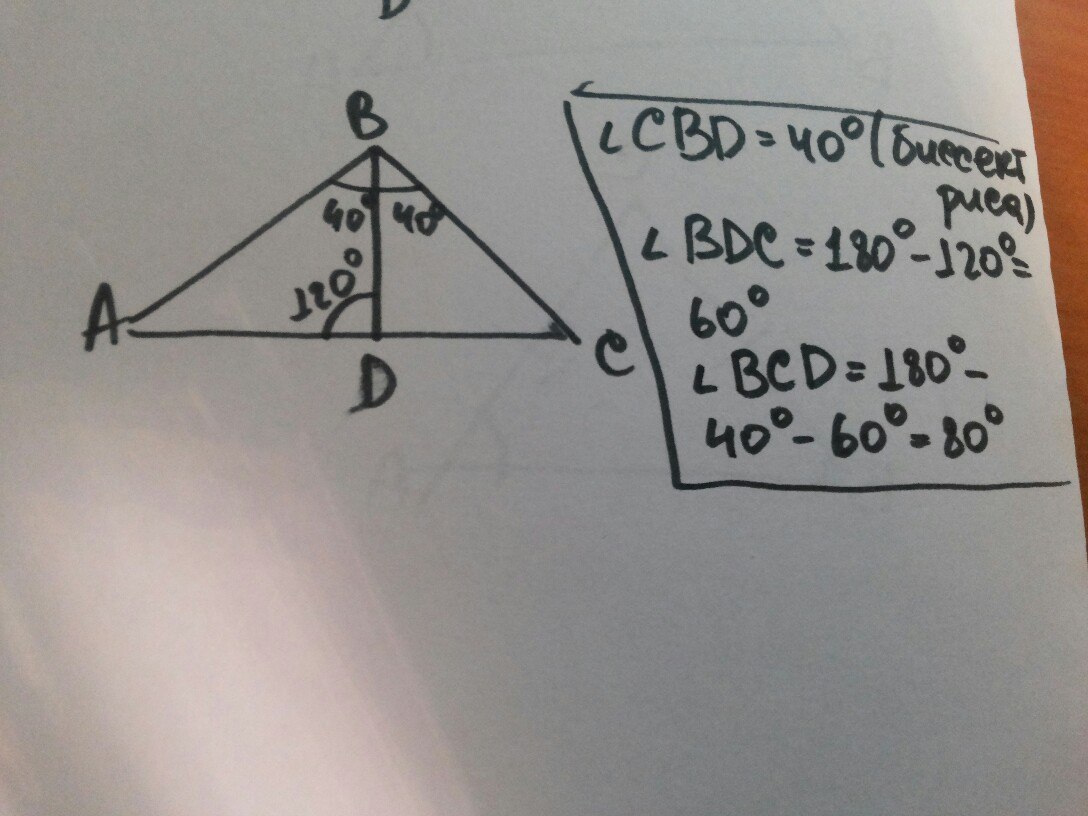 D
B
40° 40°
120°
A
D
C
∠CBD = 40° (биесект
риса)
∠BDC = 180° - 120° =
60°
∠BCD = 180° -
40° - 60° = 80°